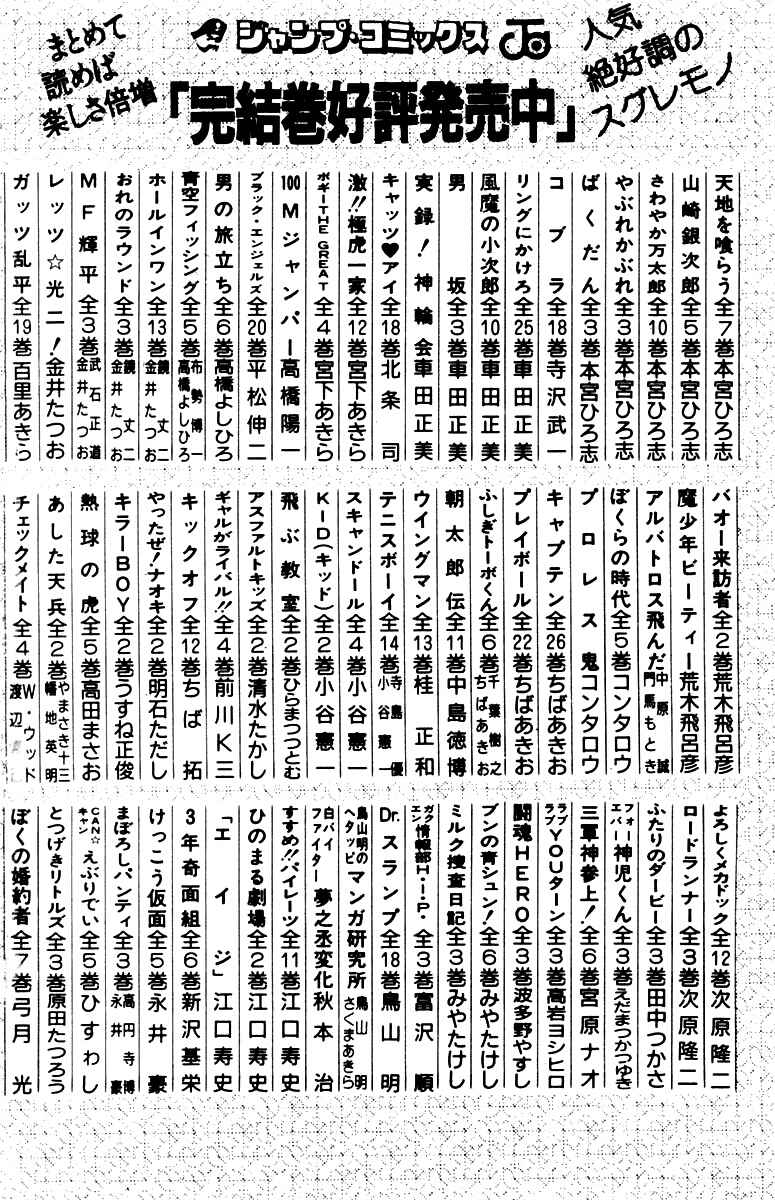 まとめて
読めば
楽しさ倍増
ジャンプ・コミックス
人気
絶好調の
スグレモノ
「完結巻好評発売中」
天地を喰らう全7巻本宮ひろ志
山崎銀次郎全5巻本宮ひろ志
さわやか万太郎全10巻本宮ひろ志
やぶれかぶれ全3巻本宮ひろ志
ばくだん全3巻本宮ひろ志
コブラ全18巻寺沢武一
リングにかけろ全25巻車田正美
風魔の小次郎全10巻車田正美
男坂全3巻車田正美
実録!神輪会車田正美
キャッツ♥アイ全18巻北条司
激!!極虎一家全12巻宮下あきら
ボギーTHE GREAT全4巻宮下あきら
100Mジャンパー高橋陽一
ブラック・エンジェルズ全20巻平松伸二
男の旅立ち全6巻高橋よしひろ
青空フィッシング全5巻布勢博一高橋よしひろ
ホールインワン全13巻鏡丈二金井たつお
おれのラウンド全3巻鏡丈二金井たつお
MF輝平全3巻武石正道金井たつお
レッツ☆光二!金井たつお
ガッツ乱平全19巻百里あきら
バオー来訪者全2巻荒木飛呂彦
魔少年ビーティー荒木飛呂彦
アルバトロス飛んだ中原誠門馬もとき
ぼくらの時代全5巻コンタロウ
プロレス鬼コンタロウ
キャプテン全26巻ちばあきお
プレイボール全22巻ちばあきお
ふしぎトーボくん全6巻千葉樹之ちばあきお
朝太郎伝全11巻中島徳博
ウイングマン全13巻桂正和
テニスボーイ全14巻寺島優小谷憲一
スキャンドール全4巻小谷憲一
KID(キッド)全2巻小谷憲一
飛ぶ教室全2巻ひらまつつとむ
アスファルトキッズ全2巻清水たかし
ギャルがライバル!!全4巻前川K三
キックオフ全12巻ちば拓
やったぜ!ナオキ全2巻明石ただし
キラーBOY全2巻うすね正俊
熱球の虎全5巻高田まさお
あした天兵全2巻やまさき十三幡地英明
チェックメイト全4巻W・ウッド渡辺
よろしくメカドック全12巻次原隆二
ロードランナー全3巻次原隆二
ふたりのダービー全3巻田中つかさ
フォーエバー神児くん全3巻えだまつかつゆき
三軍神参上!全6巻宮原ナオ
ラブラブYOUターン全3巻高岩ヨシヒロ
闘魂HERO全3巻波多野やすし
ブンの青シュン!全6巻みやたけし
ミルク捜査日記全3巻みやたけし
ガクエン情報部H・I・P・全3巻富沢順
Dr.スランプ全18巻鳥山明
鳥山明のヘタッピマンガ研究所鳥山明さくまあきら
白バイファイター夢之丞変化秋本治
すすめ!!パイレーツ全11巻江口寿史
ひのまる劇場全2巻江口寿史
「エイジ」江口寿史
3年奇面組全6巻新沢基栄
けっこう仮面全5巻永井豪
まぼろしパンティ全3巻高円寺博永井豪
CAN☆キャンえぶりでい全5巻ひすわし
とつげきリトルズ全3巻原田たつろう
ぼくの婚約者全7巻弓月光